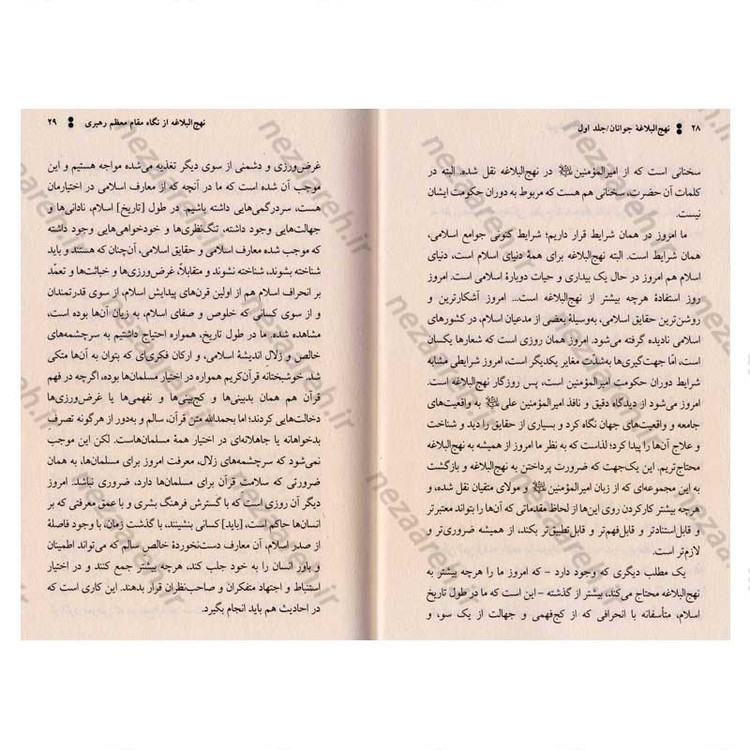 ۲۸ نهج‌البلاغهٔ جوانان/جلد اول
سخنانی است که از امیرالمؤمنین در نهج‌البلاغه نقل شده. البته در
کلمات آن حضرت، سخنانی هم هست که مربوط به دوران حکومت ایشان
نیست.
ما امروز در همان شرایط قرار داریم؛ شرایط کنونی جوامع اسلامی،
همان شرایط است. البته نهج‌البلاغه برای همهٔ دنیای اسلام است، دنیای
اسلام هم امروز در حال یک بیداری و حیات دوبارهٔ اسلامی است. امروز
روز استفادهٔ هرچه بیشتر از نهج‌البلاغه است... امروز آشکارترین و
روشن‌ترین حقایق اسلامی، به‌وسیلهٔ بعضی از مدعیان اسلام، در کشورهای
اسلامی نادیده گرفته می‌شود. امروز همان روزی است که شعارها یکسان
است، امّا جهت‌گیری‌ها به‌شدّت مغایر یکدیگر است، امروز شرایطی مشابه
شرایط دوران حکومت امیرالمؤمنین است. پس روزگار نهج‌البلاغه است.
امروز می‌شود از دیدگاه دقیق و نافذ امیرالمؤمنین علی به واقعیت‌های
جامعه و واقعیت‌های جهان نگاه کرد و بسیاری از حقایق را دید و شناخت
و علاج آن‌ها را پیدا کرد؛ لذاست که به نظر ما امروز از همیشه به نهج‌البلاغه
محتاج‌تریم. این یک‌جهت که ضرورت پرداختن به نهج‌البلاغه و بازگشت
به این مجموعه‌ای که از زبان امیرالمؤمنین و مولای متقیان نقل شده، و
هرچه بیشتر کارکردن روی این‌ها از لحاظ مقدماتی که آن‌ها را بتواند معتبرتر
و قابل‌استنادتر و قابل‌فهم‌تر و قابل‌تطبیق‌تر بکند، از همیشه ضروری‌تر و
لازم‌تر است.
یک مطلب دیگری که وجود دارد – که امروز ما را هرچه بیشتر به
نهج‌البلاغه محتاج می‌کند، بیشتر از گذشته – این است که ما در طول تاریخ
اسلام، متأسفانه با انحرافی که از کج‌فهمی و جهالت از یک سو، و
نهج‌البلاغه از نگاه مقام معظم رهبری ۲۹
غرض‌ورزی و دشمنی از سوی دیگر تغذیه می‌شده مواجه هستیم و این
موجب آن شده است که ما در آنچه که از معارف اسلامی در اختیارمان
هست، سردرگمی‌هایی داشته باشیم. در طول [تاریخ] اسلام، نادانی‌ها و
جهالت‌هایی وجود داشته، تنگ‌نظری‌ها و خودخواهی‌هایی وجود داشته
که موجب شده معارف اسلامی و حقایق اسلامی، آن‌چنان که هستند و باید
شناخته بشوند، شناخته نشوند و متقابلاً، غرض‌ورزی‌ها و خباثت‌ها و تعمّد
بر انحراف اسلام هم از اولین قرن‌های پیدایش اسلام، از سوی قدرتمندان
و از سوی کسانی که خلوص و صفای اسلام، به زیان آن‌ها بوده است،
مشاهده شده. ما در طول تاریخ، همواره احتیاج داشتیم به سرچشمه‌های
خالص و زلال اندیشهٔ اسلامی، و ارکان فکری‌ای که بتوان به آن‌ها متکی
شد. خوشبختانه قرآن‌کریم همواره در اختیار مسلمان‌ها بوده، اگرچه در فهم
قرآن هم همان بدبینی‌ها و کج‌بینی‌ها و نفهمی‌ها یا غرض‌ورزی‌ها
دخالت‌هایی کردند؛ اما بحمدالله متن قرآن، سالم و به‌دور از هرگونه تصرف
بدخواهانه یا جاهلانه‌ای در اختیار همهٔ مسلمان‌هاست. لکن این موجب
نمی‌شود که سرچشمه‌های زلال، معرفت امروز برای مسلمان‌ها، به همان
ضرورتی که سلامت قرآن برای مسلمان‌ها دارد، ضروری نباشد. امروز
دیگر آن روزی است که با گسترش فرهنگ بشری و با عمق معرفتی که بر
انسان‌ها حاکم است، [باید] کسانی بنشینند، با گذشت زمان، با وجود فاصلهٔ
از صدر اسلام، آن معارف دست‌نخوردهٔ خالص سالم که می‌تواند اطمینان
و باور انسان را به خود جلب کند، هرچه بیشتر جمع کنند و در اختیار
استنباط و اجتهاد متفکران و صاحب‌نظران قرار بدهند. این کاری است که
در احادیث هم باید انجام بگیرد.
nezaareh.ir